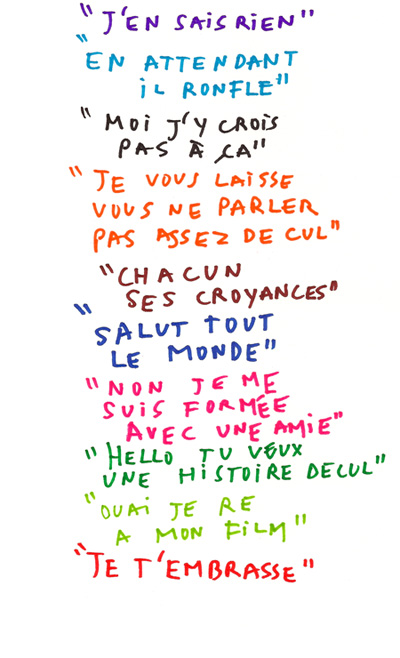 "J'EN SAIS RIEN"
"EN ATTENDANT
IL RONFLE"
"MOI J'Y CROIS
PAS À ÇA"
"JE VOUS LAISSE
VOUS NE PARLER
PAS ASSEZ DE CUL"
"CHACUN
SES CROYANCES"
"SALUT TOUT
LE MONDE"
"NON JE ME
SUIS FORMÉE
AVEC UNE AMIE"
"HELLO TU VEUX
UNE HISTOIRE DE CUL"
"OUAI JE RE
A MON FILM"
"JE T'EMBRASSE"